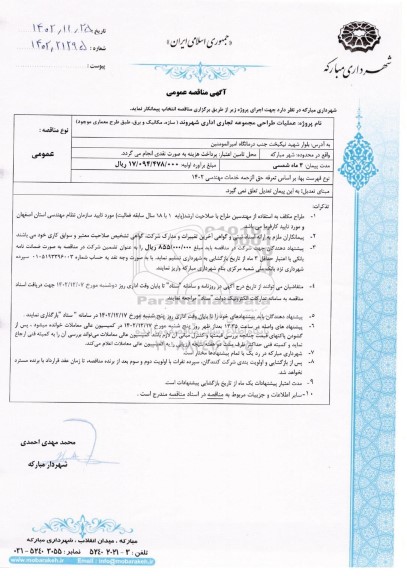 «جمهوری اسلامی ایران»
تاریخ ۱۴۰۲،۱۱،۲۵
شماره ۱۴۰۲،۲۱۲۹۵
پیوست
شهرداری مبارکه
آگهی مناقصه عمومی
شهرداری مبارکه در نظر دارد جهت اجرای پروژه زیر از طریق برگزاری مناقصه انتخاب پیمانکار نماید.
نام پروژه: عملیات طراحی مجموعه تجاری اداری شهروند (سازه، مکانیک و برق، طبق طرح معماری موجود)
نوع مناقصه:
به آدرس: بلوار شهید نیکبخت جنب درمانگاه امیرالمومنین
عمومی
واقع در محدوده: شهر مبارکه
محل تامین اعتبار: پرداخت هزینه به صورت نقدی انجام می گردد.
مدت پیمان: ۳ ماه شمسی
مبلغ برآورد اولیه: ۱۷/۰۹۴/۴۷۸/۰۰۰ ریال
نوع فهرست بها: بر اساس تعرفه حق الزحمه خدمات مهندسی ۱۴۰۲
مبنای تعدیل: به این پیمان تعدیل تعلق نمی گیرد.
تذکرات:
۱- طراح مکلف به استفاده از مهندسین طراح با صلاحیت ارشد(پایه ۱ با ۱۸ سال سابقه فعالیت) مورد تایید سازمان نظام مهندسی استان اصفهان
و مورد تایید کارفرما
۲- پیمانکاران ملزم به ارائه اسناد ثبتی و گواهی آخرین تغییرات و مدارک شرکت، گواهی تشخیص صلاحیت معتبر و سوابق کاری خود می باشند
۳- پیشنهاد دهندگان جهت شرکت در مناقصه باید مبلغ ۸۵۵/۰۰۰/۰۰۰ ریال را به عنوان تضمین شرکت در مناقصه به صورت ضمانت نامه
بانکی با اعتبار حداقل ۳ ماه از تاریخ بازگشایی به شهرداری تسلیم نماید. یا به صورت وجه نقد به حساب شماره ۰۱۰۵۱۹۳۳۹۶۰۰۳ سپرده
شهرداری نزد بانک ملی شعبه مرکزی بنام شهرداری مبارکه واریز نمایند.
۴- متقاضیان می توانند از تاریخ درج آگهی در روزنامه و سامانه "ستاد" تا پایان وقت اداری روز مورخ جهت دریافت اسناد
مناقصه به سامانه تدارکات الکترونیک دولت "ستاد" مراجعه نمایند.
۵- پیشنهاد دهندگان باید پیشنهادهای خود را تا پایان وقت اداری روز پنج شنبه مورخ ۱۴۰۲/۱۲/۱۷ در سامانه "ستاد" بارگذاری نمایند.
۶- پیشنهاد های واصله در ساعت ۱۳:۳۵ بعداز ظهر روز پنج شنبه مورخ ۱۴۰۲/۱۲/۱۷ در کمیسیون عالی معاملات خوانده میشود.
۷- شهرداری مبارکه در رد یک یا تمام پیشنهادها مختار
۸- پس از بازگشایی و اولویت بندی شرکت کنندگان، سپرده نفرات با اولویت دوم و سوم بعد از برنده مناقصه، تا زمان عقد قرارداد با برنده مسترد
نخواهد شد.
۹- مدت اعتبار پیشنهادات یک ماه از تاریخ بازگشایی پیشنهادات است.
۱۰- سایر اطلاعات و جزییات مربوط به مناقصه در اسناد مناقصه مندرج است.
محمد مهدی احمدی
شهردار مبارکه
مبارکه، میدان انقلاب، شهرداری مبارکه
تلفن: ۳-۲۰۲۱ ۵۲۴۰ نمابر: ۲۰۵۵ ۵۲۴۰-۰۳۱